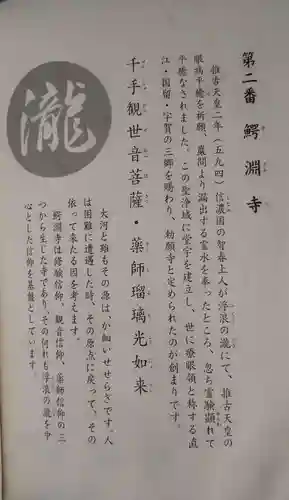 第二番 鰐淵寺
推古天皇二年(五九四)信濃国の智春上人が浮浪の瀧にて、推古天皇の
眼病平癒を祈願、巌間より漏出する霊水を奉ったところ、忽ち霊験顕れて
平癒なされました。この聖浄域に堂宇を建立し、世に療眼領と称する直
江・国留・宇賀の三郷を賜わり、勅願寺と定められたのが創まりです。
千手観世音菩薩・薬師瑠璃光如来
大河と雖もその源は、か細いせせらぎです。人
は困難に遭遇した時、その原点に戻って、その
依って来たる因を考えます。
鰐淵寺は修験信仰、観音信仰、薬師信仰の三
つから生じた寺であり、その何れも浮浪の瀧を中
心とした信仰を基盤としています。
瀧